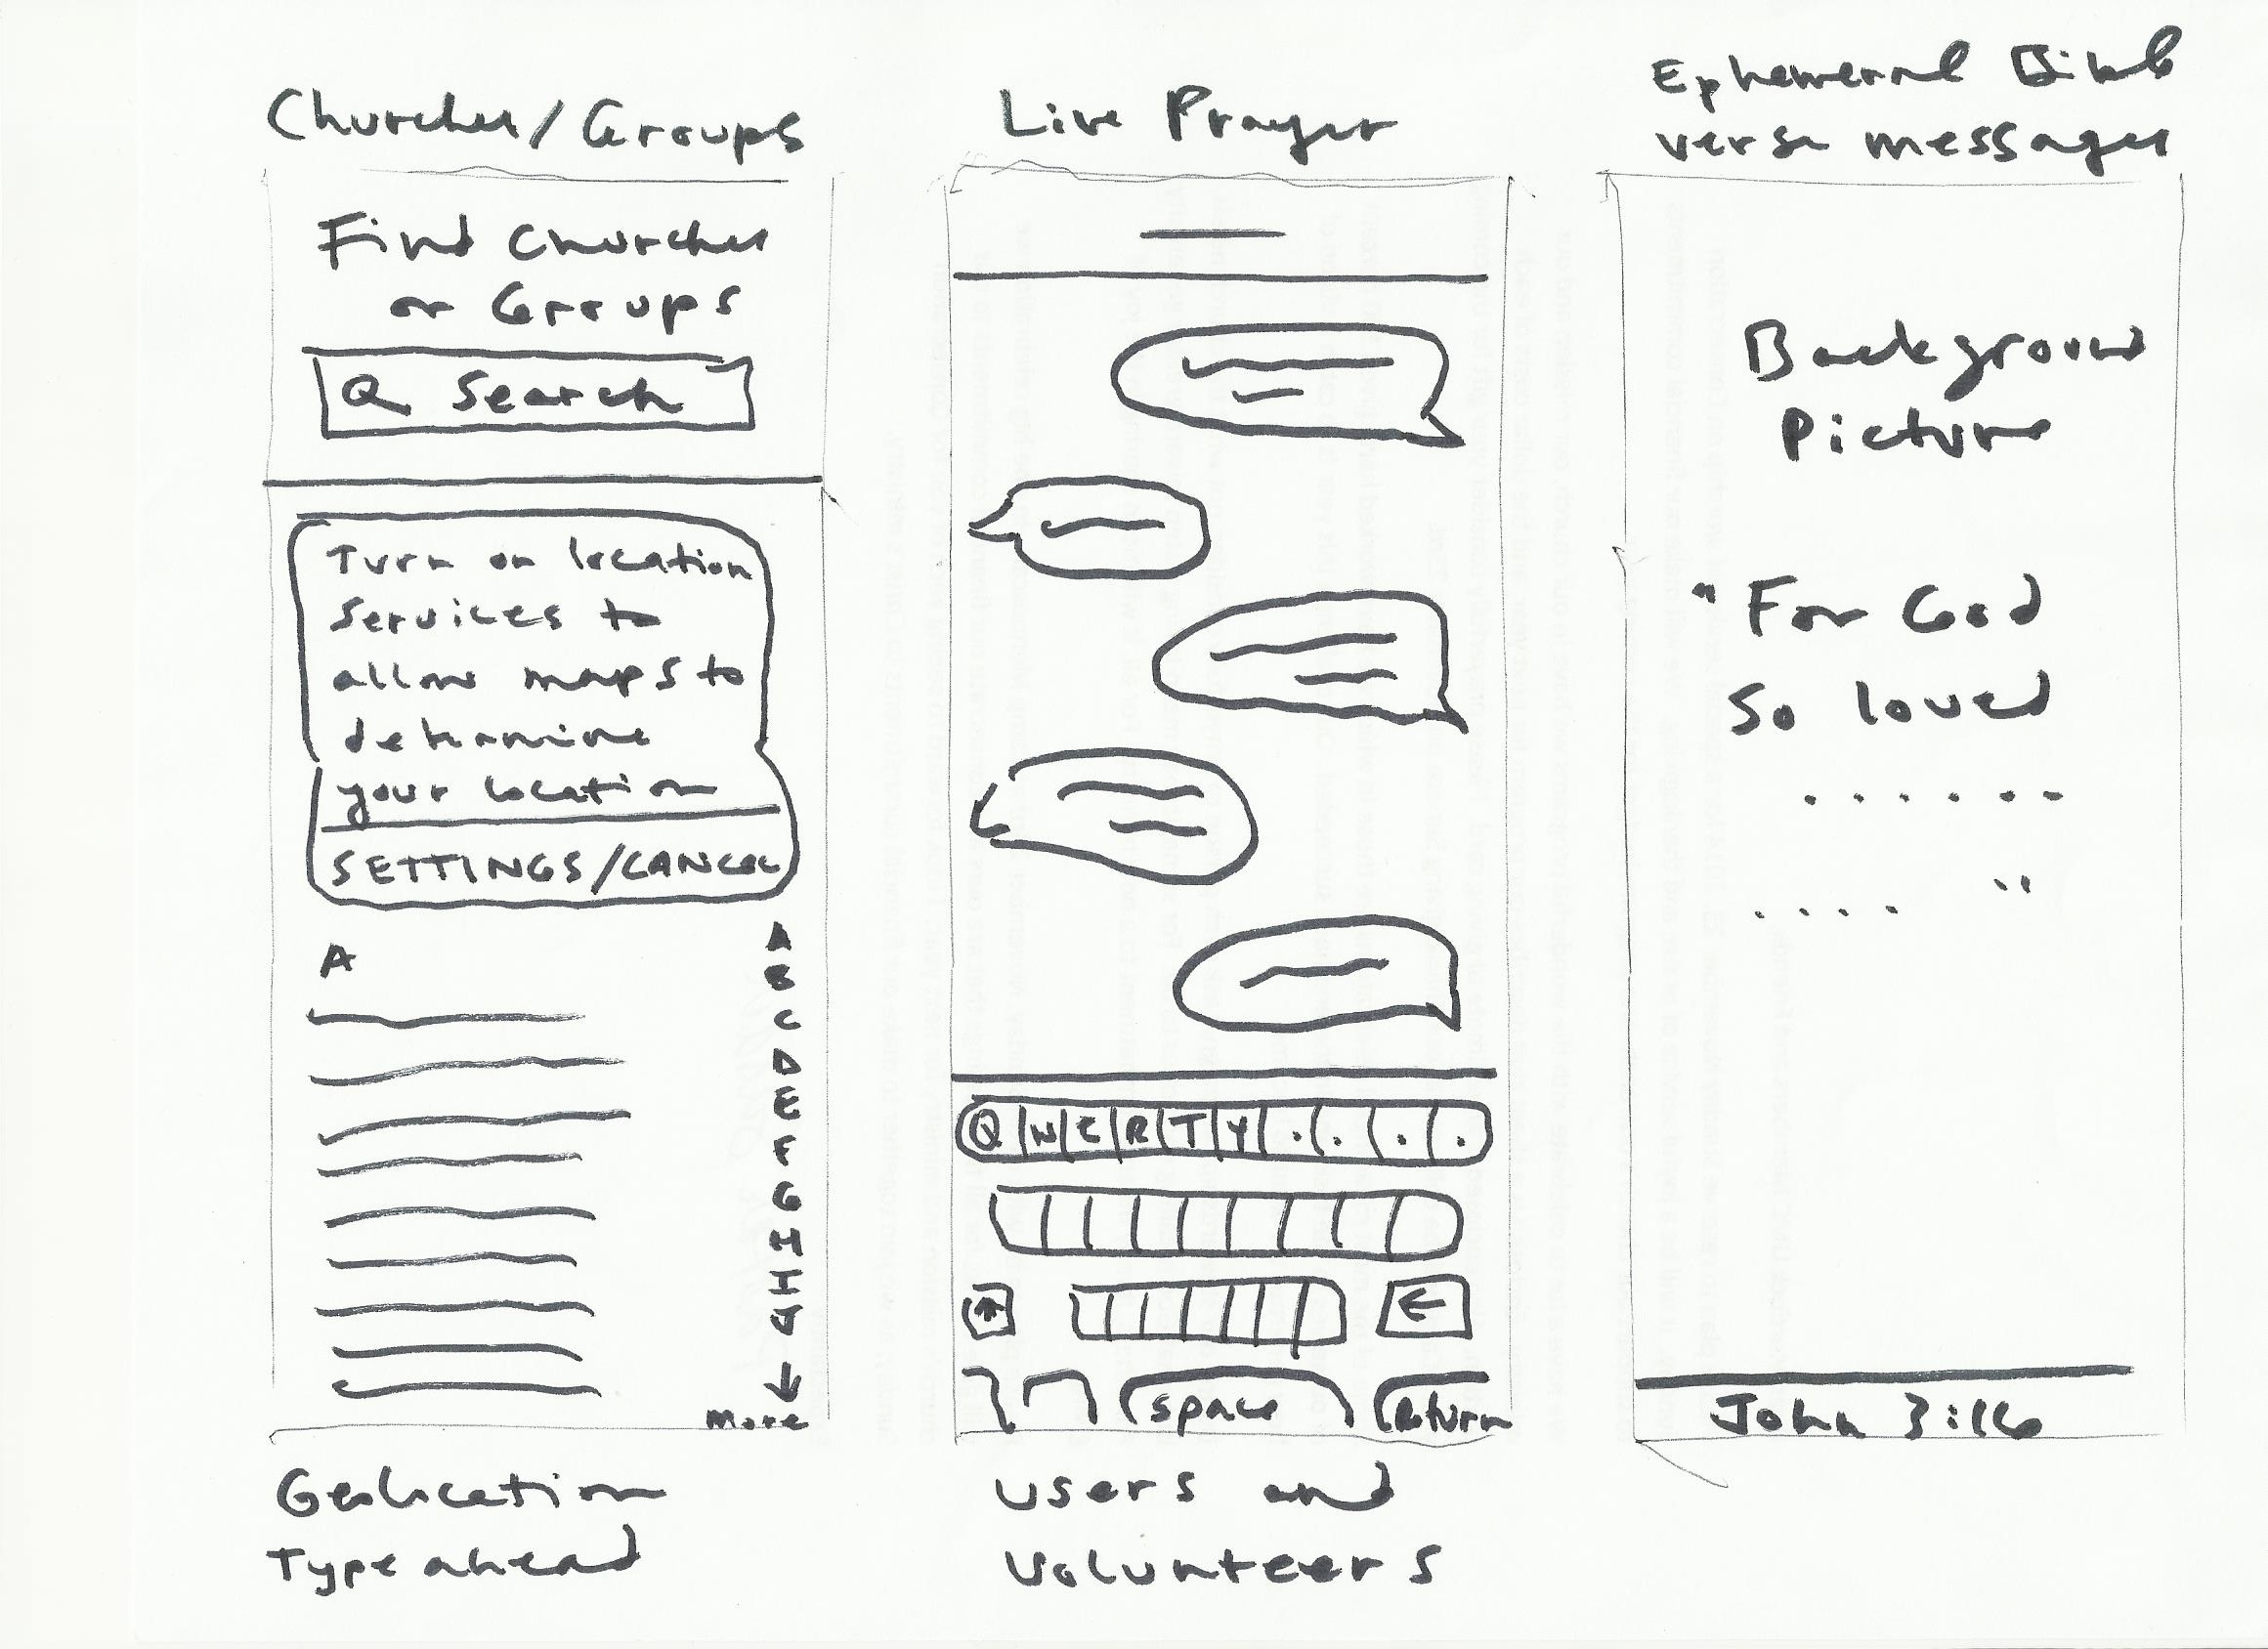 Churches/Groups
Find Churches
or Groups
Search
Turn on location
services to
allow maps to
determine
your location
SETTINGS/CANCEL
A
A
B
C
D
E
F
G
H
I
J
More
Geolocation
Type ahead
Live Prayer
Q W E R T Y . . . .
space
Return
Users and
Volunteers
Ephemeral Bible
verse messages
Background
Picture
"For God
So loved
. . . . . .
. . . . "
John 3:16